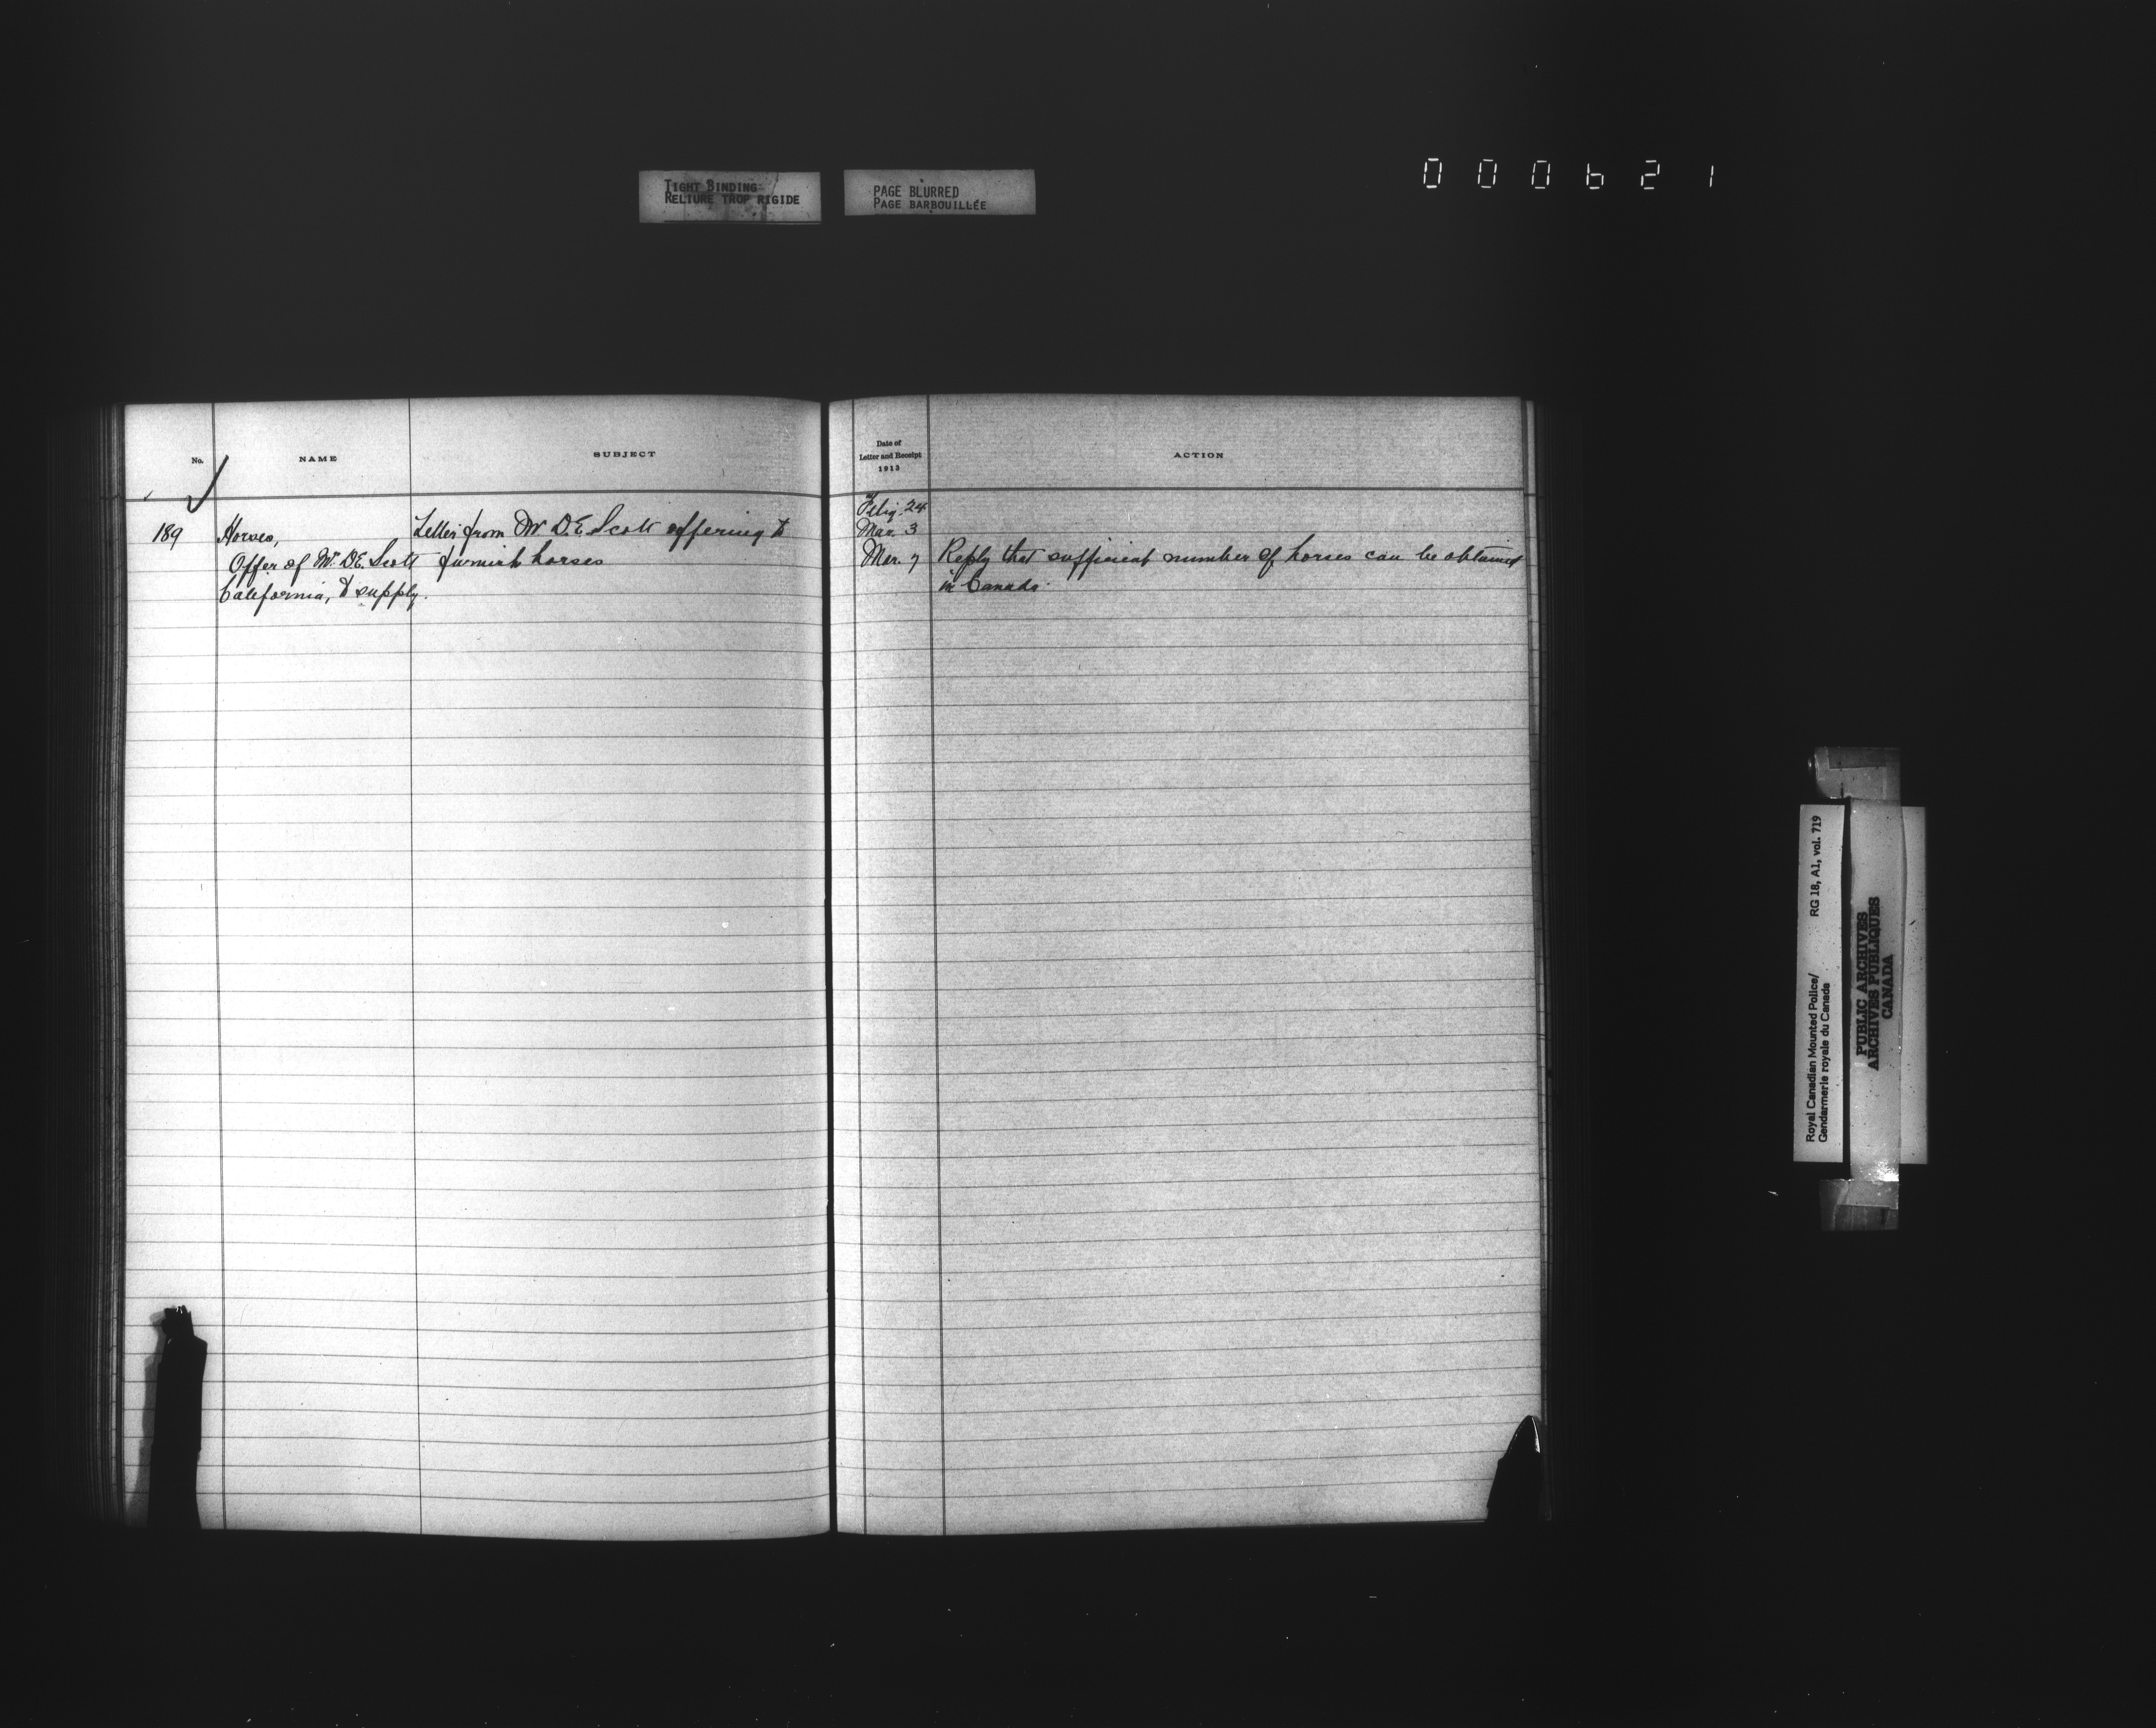 TIGHT BINDING
RELIURE TROP RIGIDE
PAGE BLURRED
PAGE BARBOUILLÉE
000621
No.
NAME
SUBJECT
Date of
Letter and Receipt
1913
ACTION
189
Horses,
Offer of Mr. D.E. Scott
California, to supply.
Letter from Mr D.E. Scott offering to
furnish horses
24
Mar. 3
Mar. 7
Reply that sufficient number of horses can be obtained
in Canada.
Royal Canadian Mounted Police/
Gendarmerie royale du Canada
RG 18, A1, vol. 719
PUBLIC ARCHIVES
ARCHIVES PUBLIQUES
CANADA